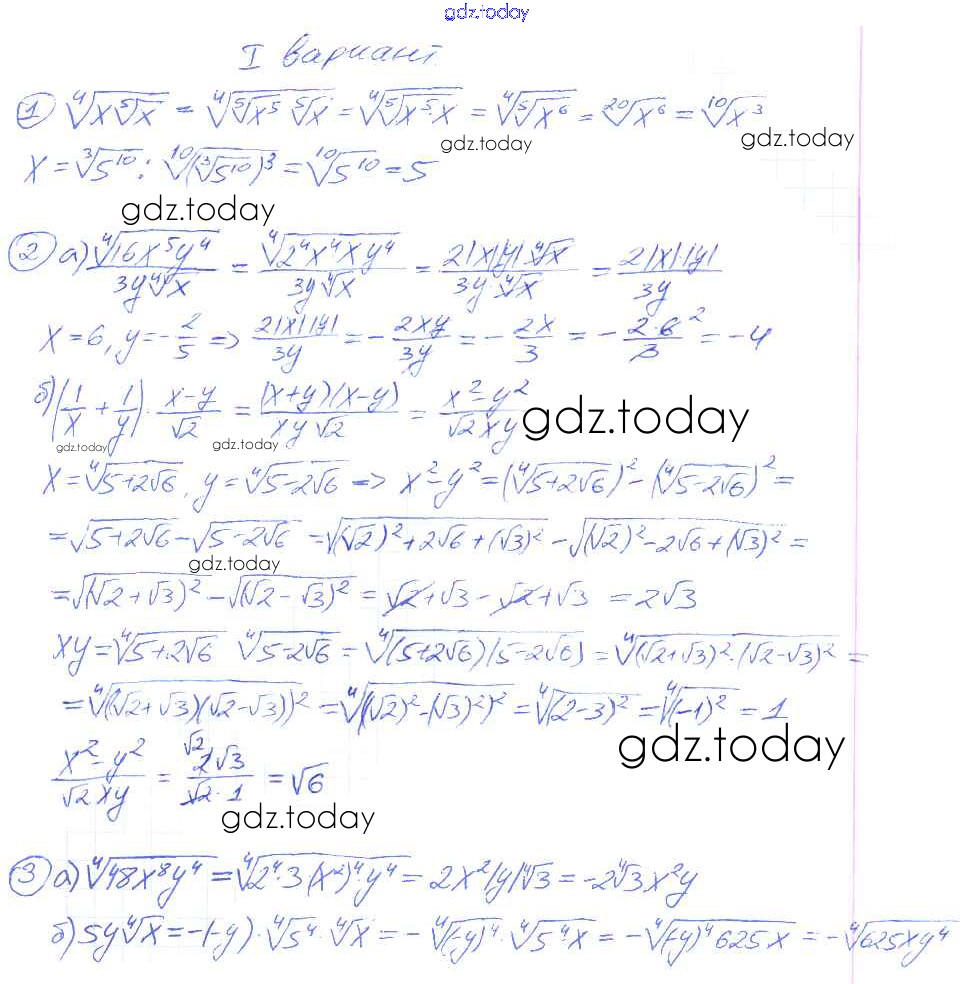 gdz.today
I вариант
① ⁴√(x⁵√x) = ⁴√(⁵√x⁵ ⁵√x) = ⁴√(⁵√(x⁵·x)) = ⁴√(⁵√x⁶) = ²⁰√x⁶ = ¹⁰√x³
gdz.today gdz.today
x = ³√5¹⁰ ; ¹⁰√(³√5¹⁰)³ = ¹⁰√5¹⁰ = 5
gdz.today
② а) ⁴√(16x⁵y⁴) / (3y⁴√x) = ⁴√(2⁴x⁴xy⁴) / (3y⁴√x) = 2|x||y|⁴√x / (3y·⁴√x) = 2|x|·|y| / 3y
x = 6, y = -2/5 => 2|x||y| / 3y = - 2xy / 3y = - 2x / 3 = - 2·6² / 3 = -4
б) (1/x + 1/y) · (x-y)/√2 = (x+y)(x-y) / (xy√2) = (x²-y²) / (√2xy)
gdz.today gdz.today gdz.today
x = ⁴√(5+2√6), y = ⁴√(5-2√6) => x²-y² = (⁴√(5+2√6))² - (⁴√(5-2√6))² =
= √(5+2√6) - √(5-2√6) = √((√2)²+2√6+(√3)²) - √((√2)²-2√6+(√3)²) =
gdz.today
= √((√2+√3)²) - √((√2-√3)²) = √2+√3-√2+√3 = 2√3
xy = ⁴√(5+2√6) ⁴√(5-2√6) = ⁴√((5+2√6)(5-2√6)) = ⁴√((√2+√3)²·(√2-√3)²) =
= ⁴√(((√2+√3)(√2-√3))²) = ⁴√(((√2)²-(√3)²)²) = ⁴√((2-3)²) = ⁴√((-1)²) = 1
gdz.today
(x²-y²) / (√2xy) = √2 2√3 / (√2·1) = √6
gdz.today
③ а) ⁴√(48x⁸y⁴) = ⁴√(2⁴·3·(x²)⁴·y⁴) = 2x²|y|⁴√3 = -2⁴√3x²y
б) 5y⁴√x = -(-y)·⁴√5⁴·⁴√x = -⁴√((-y)⁴)·⁴√(5⁴x) = -⁴√((-y)⁴625x) = -⁴√(625xy⁴)